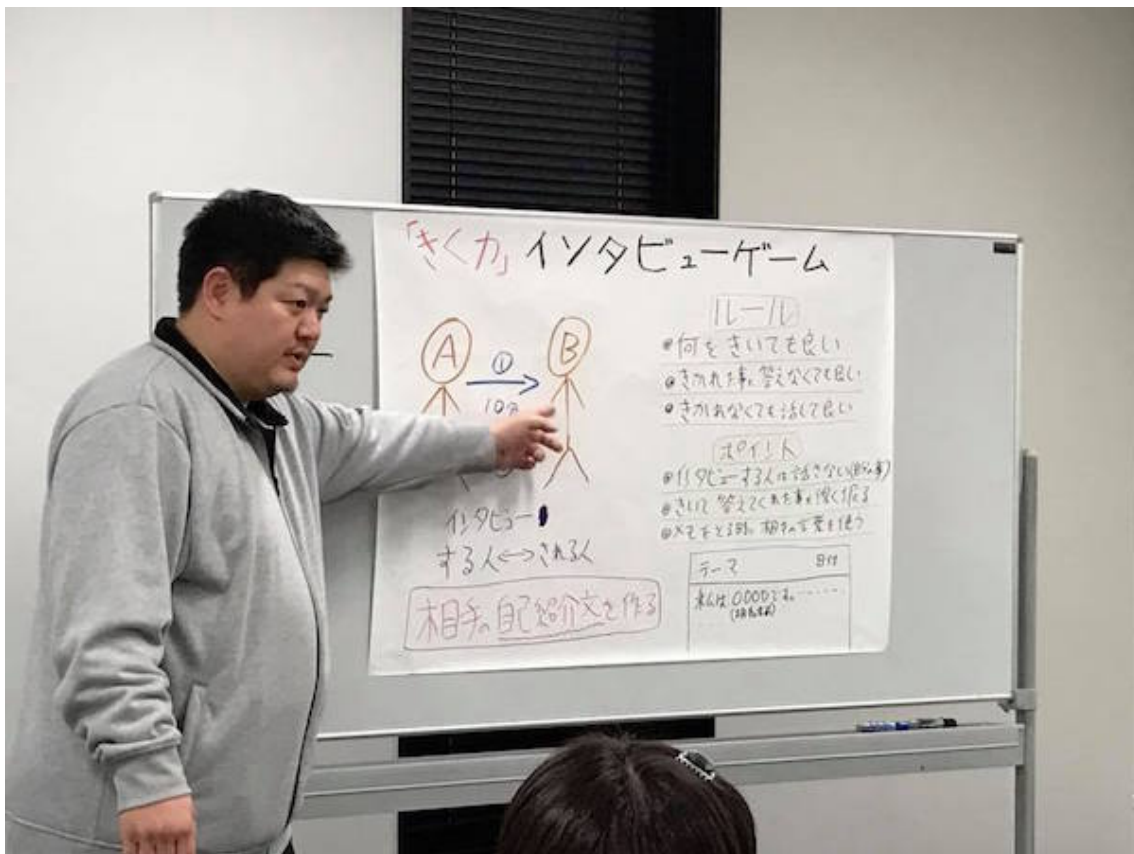 「きく力」インタビューゲーム
A
①
B
10分
インタビュー
する人↔される人
相手の自己紹介文を作る
ルール
●何をきいても良い
●きかれた事に答えなくても良い
●きかれなくても話して良い
ポイント
●インタビューする人は話さない(自分の事)
●きいて答えてくれた事を深く掘る
●メモをとる時、相手の言葉を使う
テーマ 日付
私は〇〇〇〇です。……